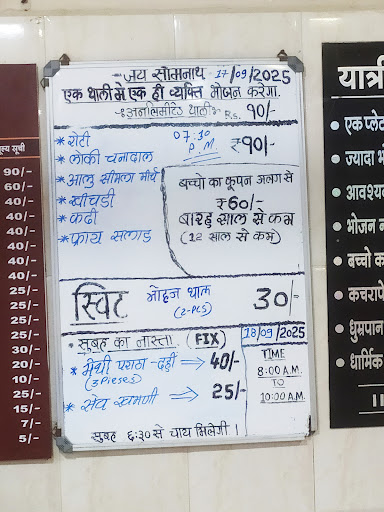 जय सोमनाथ 17/09/2025
एक थाली मे एक ही व्यक्ति भोजन करेगा.
-: अनलिमीटेड थाली :- Rs. 90/-
* रोटी
* लोकी चनादाल
* आलु सीमला मीर्च
* खीचडी
* कढी
* फ्राय सलाड
07:30
P.M.
₹90/-
बच्चो का कूपन अलग से
₹60/-
बारह साल से कम
(12 साल से कम)
स्विट मोहन थाल 30/-
(2-PCS)
• सुबह का नास्ता. (FIX) 18/09/2025
* मेथी पराठा - दही ⇒ 40/-
(3 Pieses)
* सेव खमणी ⇒ 25/-
TIME
8:00 A.M.
TO
10:00 A.M.
सुबह ६:३० से चाय मिलेगी।
मूल्य सूची
90/-
60/-
40/-
40/-
40/-
40/-
40/-
40/-
25/-
25/-
25/-
30/-
20/-
10/-
25/-
15/-
7/-
5/-
यात्री
• एक प्लेट
• ज्यादा
• आवश्य
• भोजन
• बच्चो
• कचरापे
• धुम्रपान
• धार्मिक